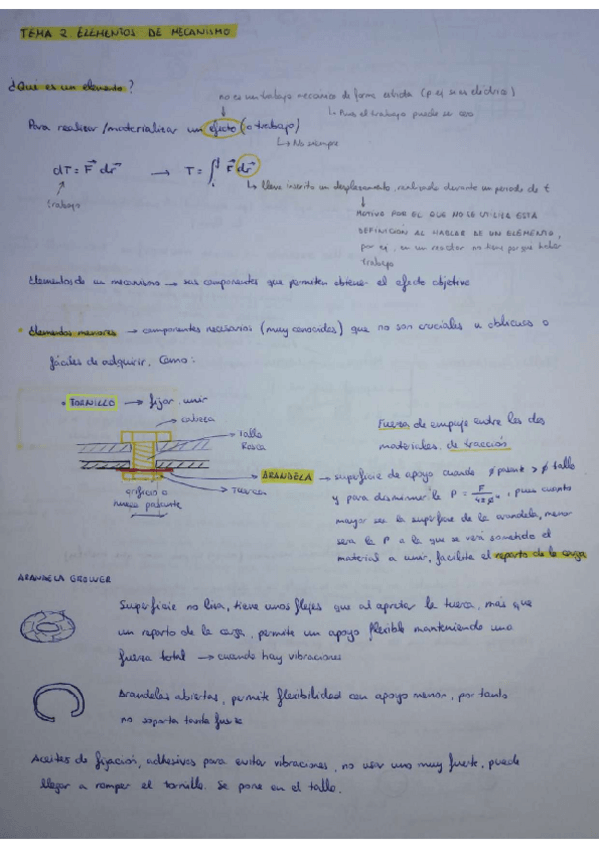 TEMA 2. ELEMENTOS DE MECANISMO
¿Qué es un elemento?
no es un trabajo mecánico de forma estricta (p ej si es eléctrico)
↳ Pues el trabajo puede ser cero
Para realizar/materializar un efecto (o trabajo)
↳ No siempre
dT = F⃗ dr⃗ → T = ∫ F⃗ dr⃗
trabajo
↳ lleva inscrito un desplazamiento, realizado durante un periodo de t
MOTIVO POR EL QUE NO SE UTILIZA ESTA
DEFINICIÓN AL HABLAR DE UN ELEMENTO,
por ej, en un no tiene por que haber
trabajo
Elementos de un mecanismo → sus componentes que permiten obtener el efecto objetivo
• Elementos menores → componentes necesarios (muy conocidos) que no son cruciales u obvios o
fáciles de adquirir. Como:
• TORNILLO → fijar, unir
cabeza
Tallo
Rosca
Fuerza de empuje entre los dos
materiales, de tracción
orificio o
hueco pasante
Tuerca
ARANDELA → superficie de apoyo cuando ∅ pasante > ∅ tallo
y para disminuir la P = F, pues cuanto
mayor sea la superficie de la arandela, menor
será la P a la que se verá sometido el
material a unir, facilita el reparto de la carga
ARANDELA GROWER
Superficie no lisa, tiene unos flejes que al apretar la tuerca, más que
un reparto de la carga, permite un apoyo flexible manteniendo una
fuerza total → cuando hay vibraciones
Arandelas abiertas, permite flexibilidad con apoyo menor, por tanto
no soporta tanta fuerza
Aceites de fijación, adhesivos para evitar vibraciones, no usar uno muy fuerte, puede
llegar a romper el tornillo. Se pone en el tallo.